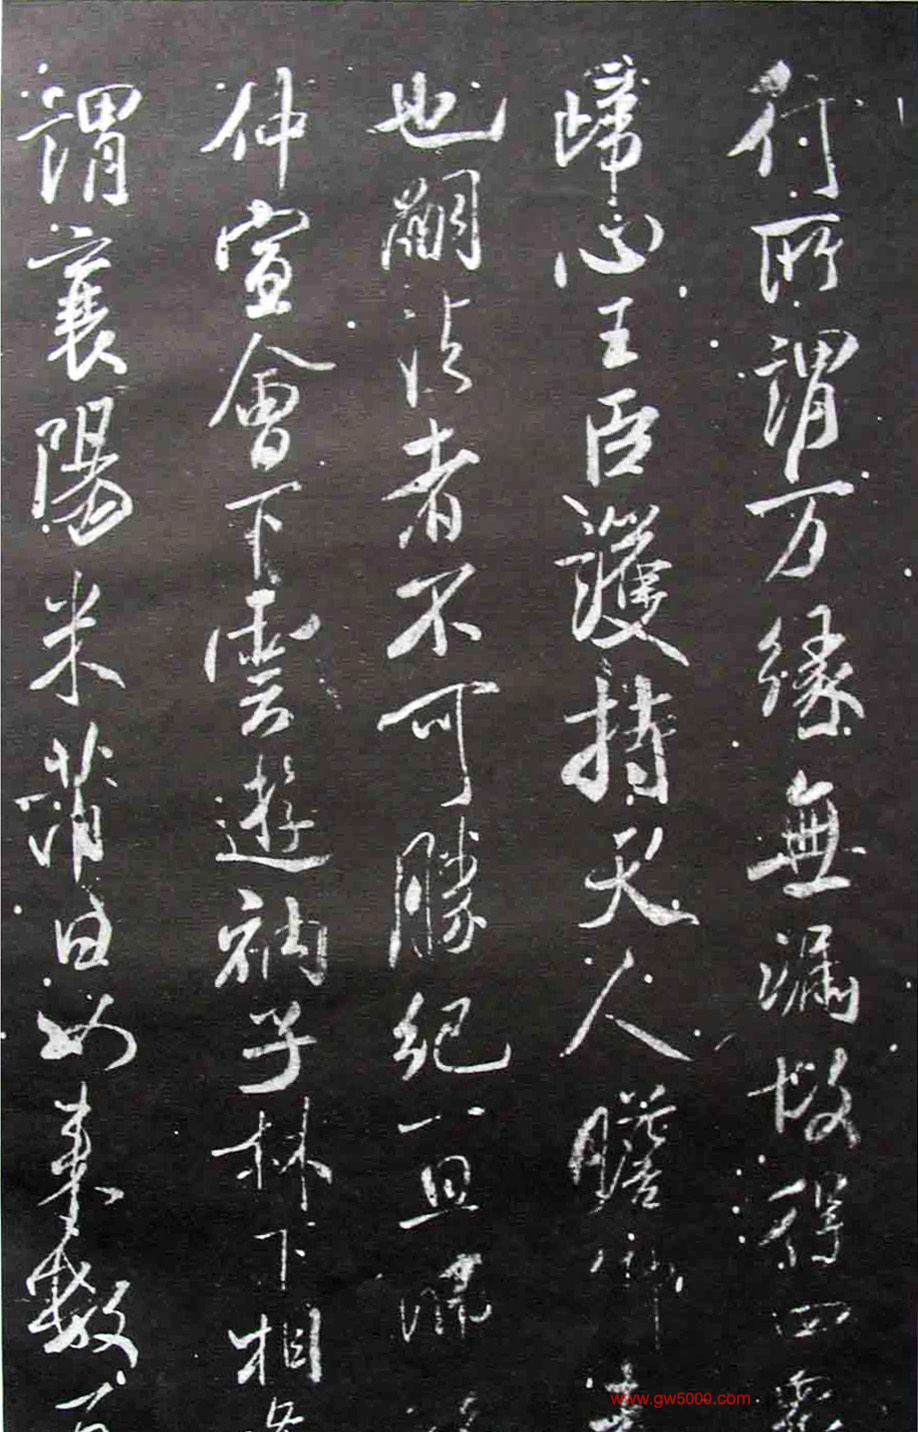 付所謂万緣無漏故得四眾
歸心王臣護持天人瞻仰
也嗣法者不可勝紀一旦歸
仲宣會下雲遊衲子林下相
謂襄陽米芾曰如來數百
www.gw5000.com